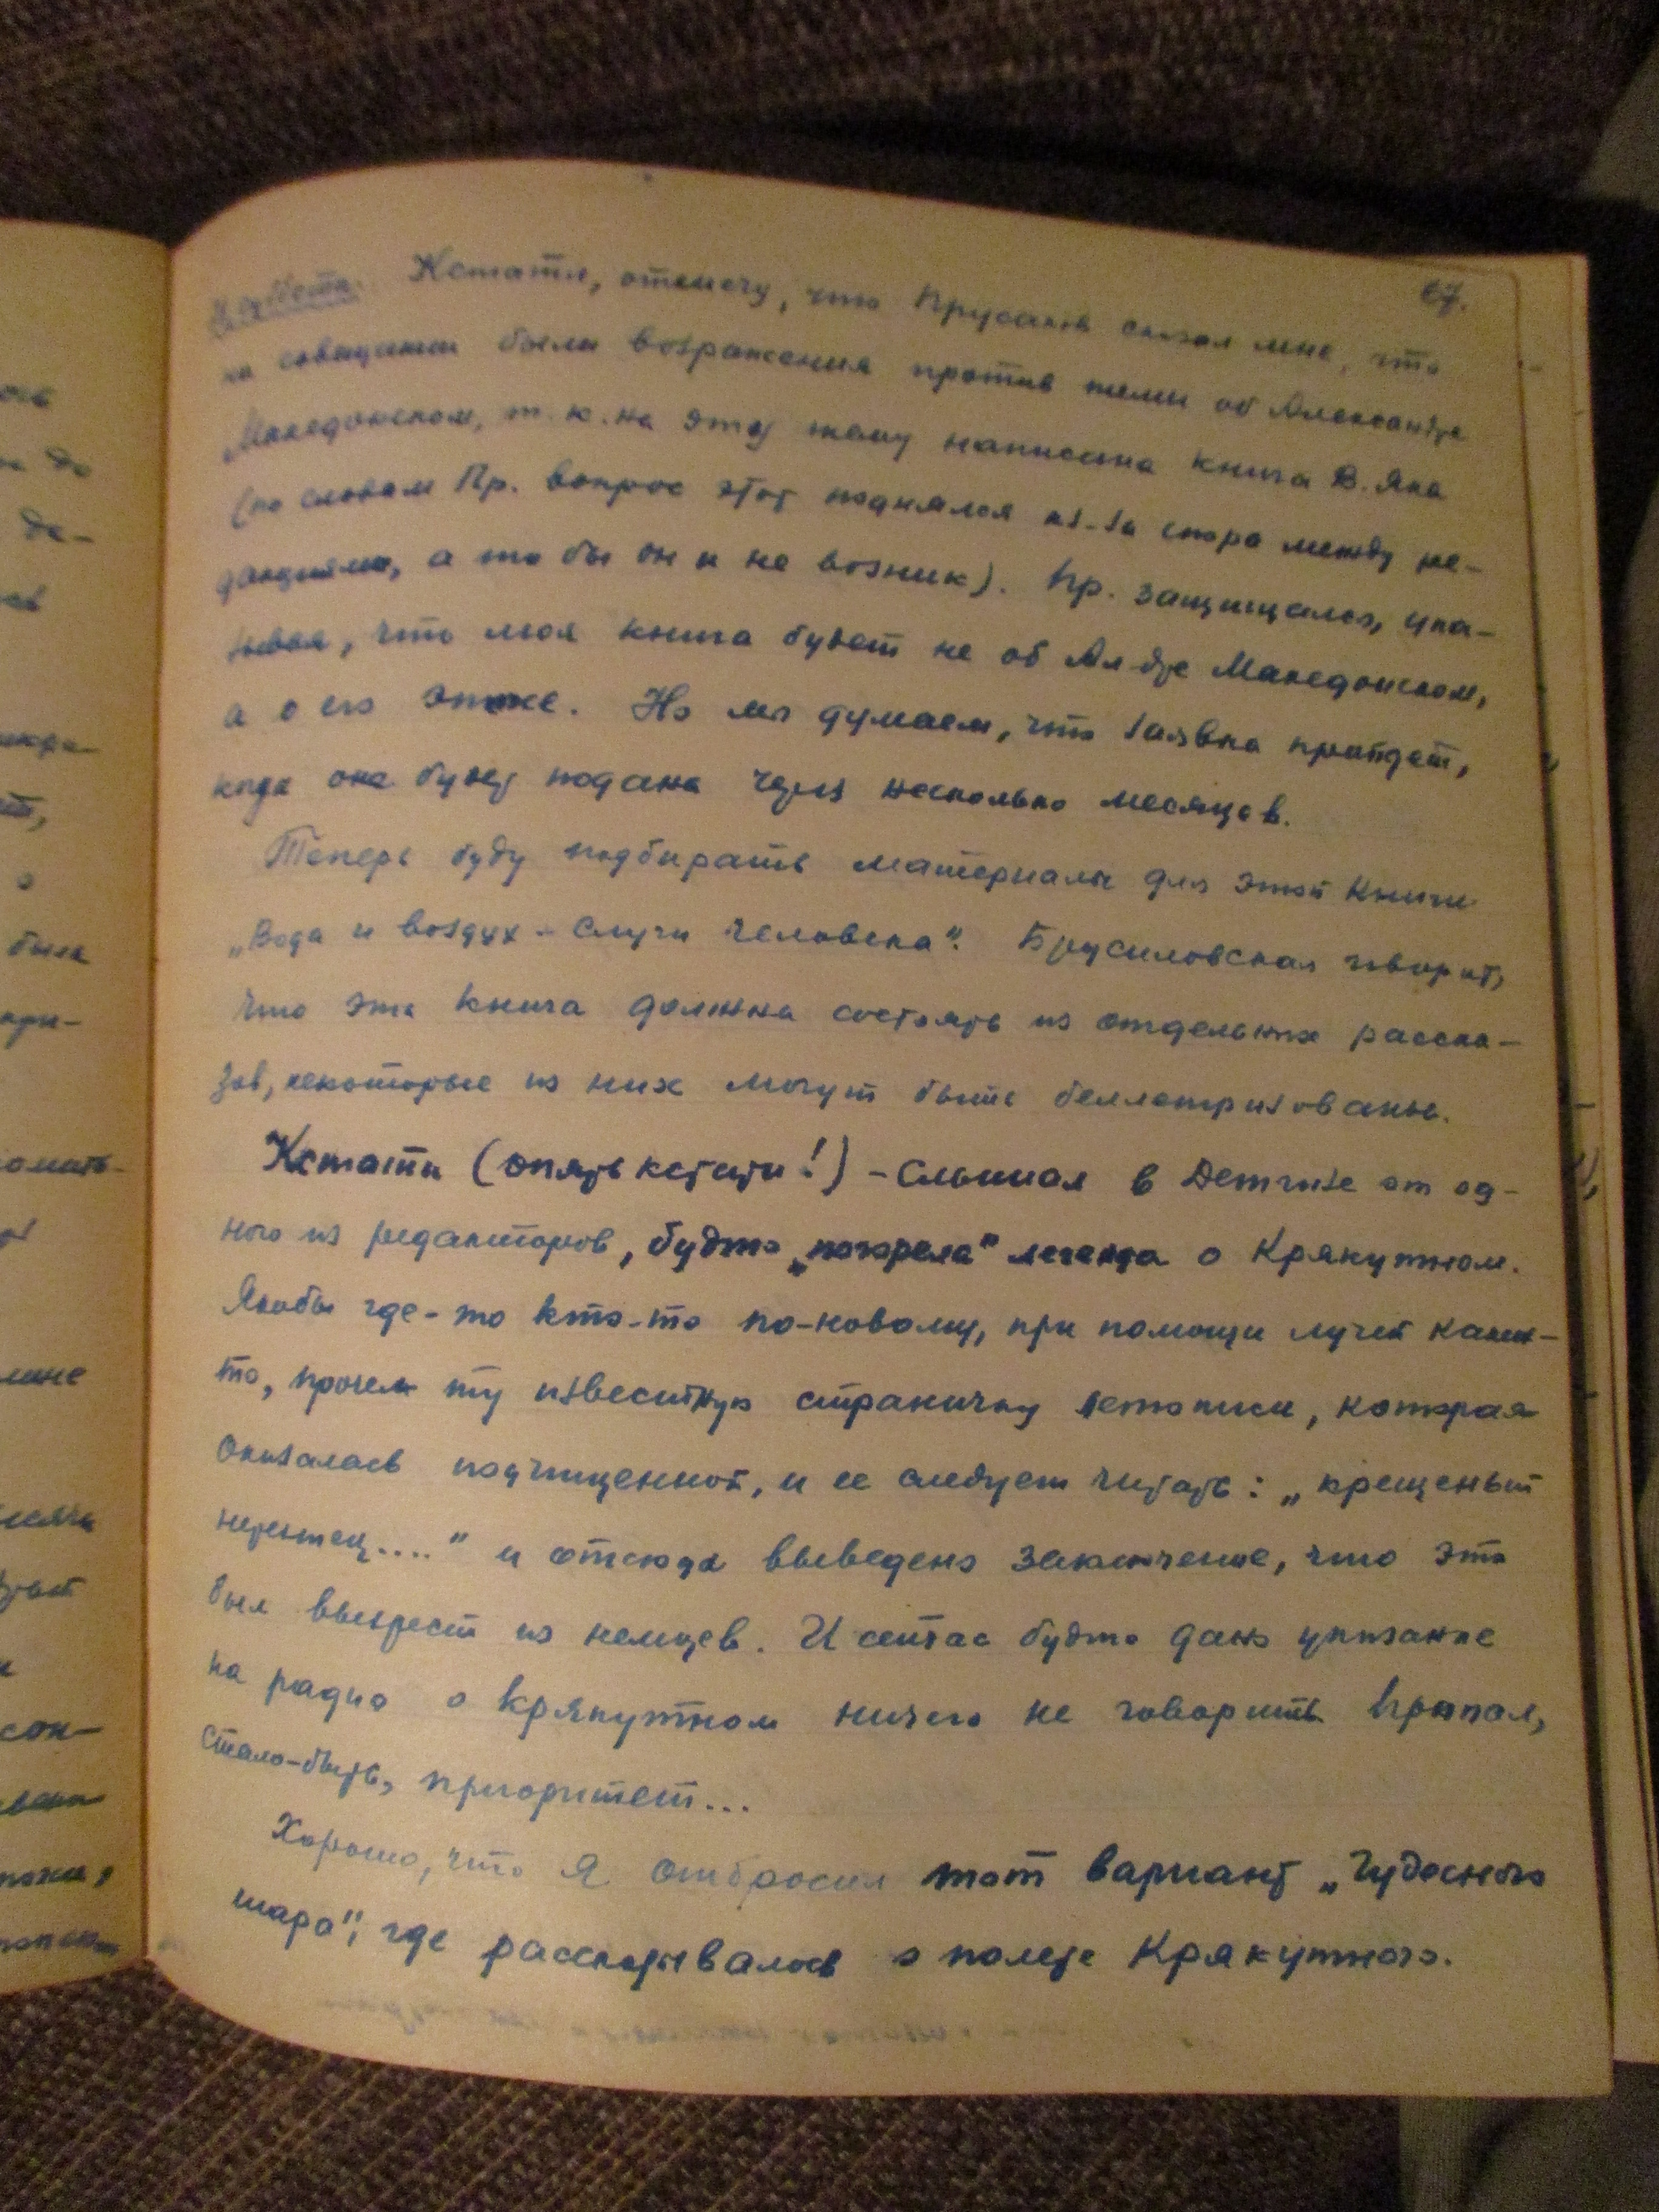 67.
Кстати, отмечу, что Прусаков сказал мне, что
на совещании были возражения против темы об Александре
Македонском, т. к. на эту тему написана книга В. Яна
(по словам Пр. вопрос этот поднялся из-за спора между ре-
дакциями, а то бы он и не возник). Пр. защищался, ука-
зывая, что моя книга будет не об Ал-дре Македонском,
а о его эпохе. Но мы думаем, что заявка пройдет,
когда она будет подана через несколько месяцев.
Теперь буду подбирать материалы для этой книги
„Вода и воздух - слуги человека". Брусиловская говорит,
что эта книга должна состоять из отдельных расска-
зов, некоторые из них могут быть беллетризованы.
Кстати (опять кстати!) - слышал в Детгизе от од-
ного из редакторов, будто „погорела" легенда о Крякутном.
Якобы где-то кто-то по-новому, при помощи лучей каких-
то, прочел ту известную страничку летописи, которая
оказалась подчищенной, и ее следует читать: „крещеный
немец...." и отсюда выведено заключение, что это
был выкрест из немцев. И сейчас будто дано указание
на радио о Крякутном ничего не говорить. Пропал,
стало-быть, приоритет...
Хорошо, что я отбросил тот вариант „Чудесного
шара", где рассказывалось о полете Крякутного.